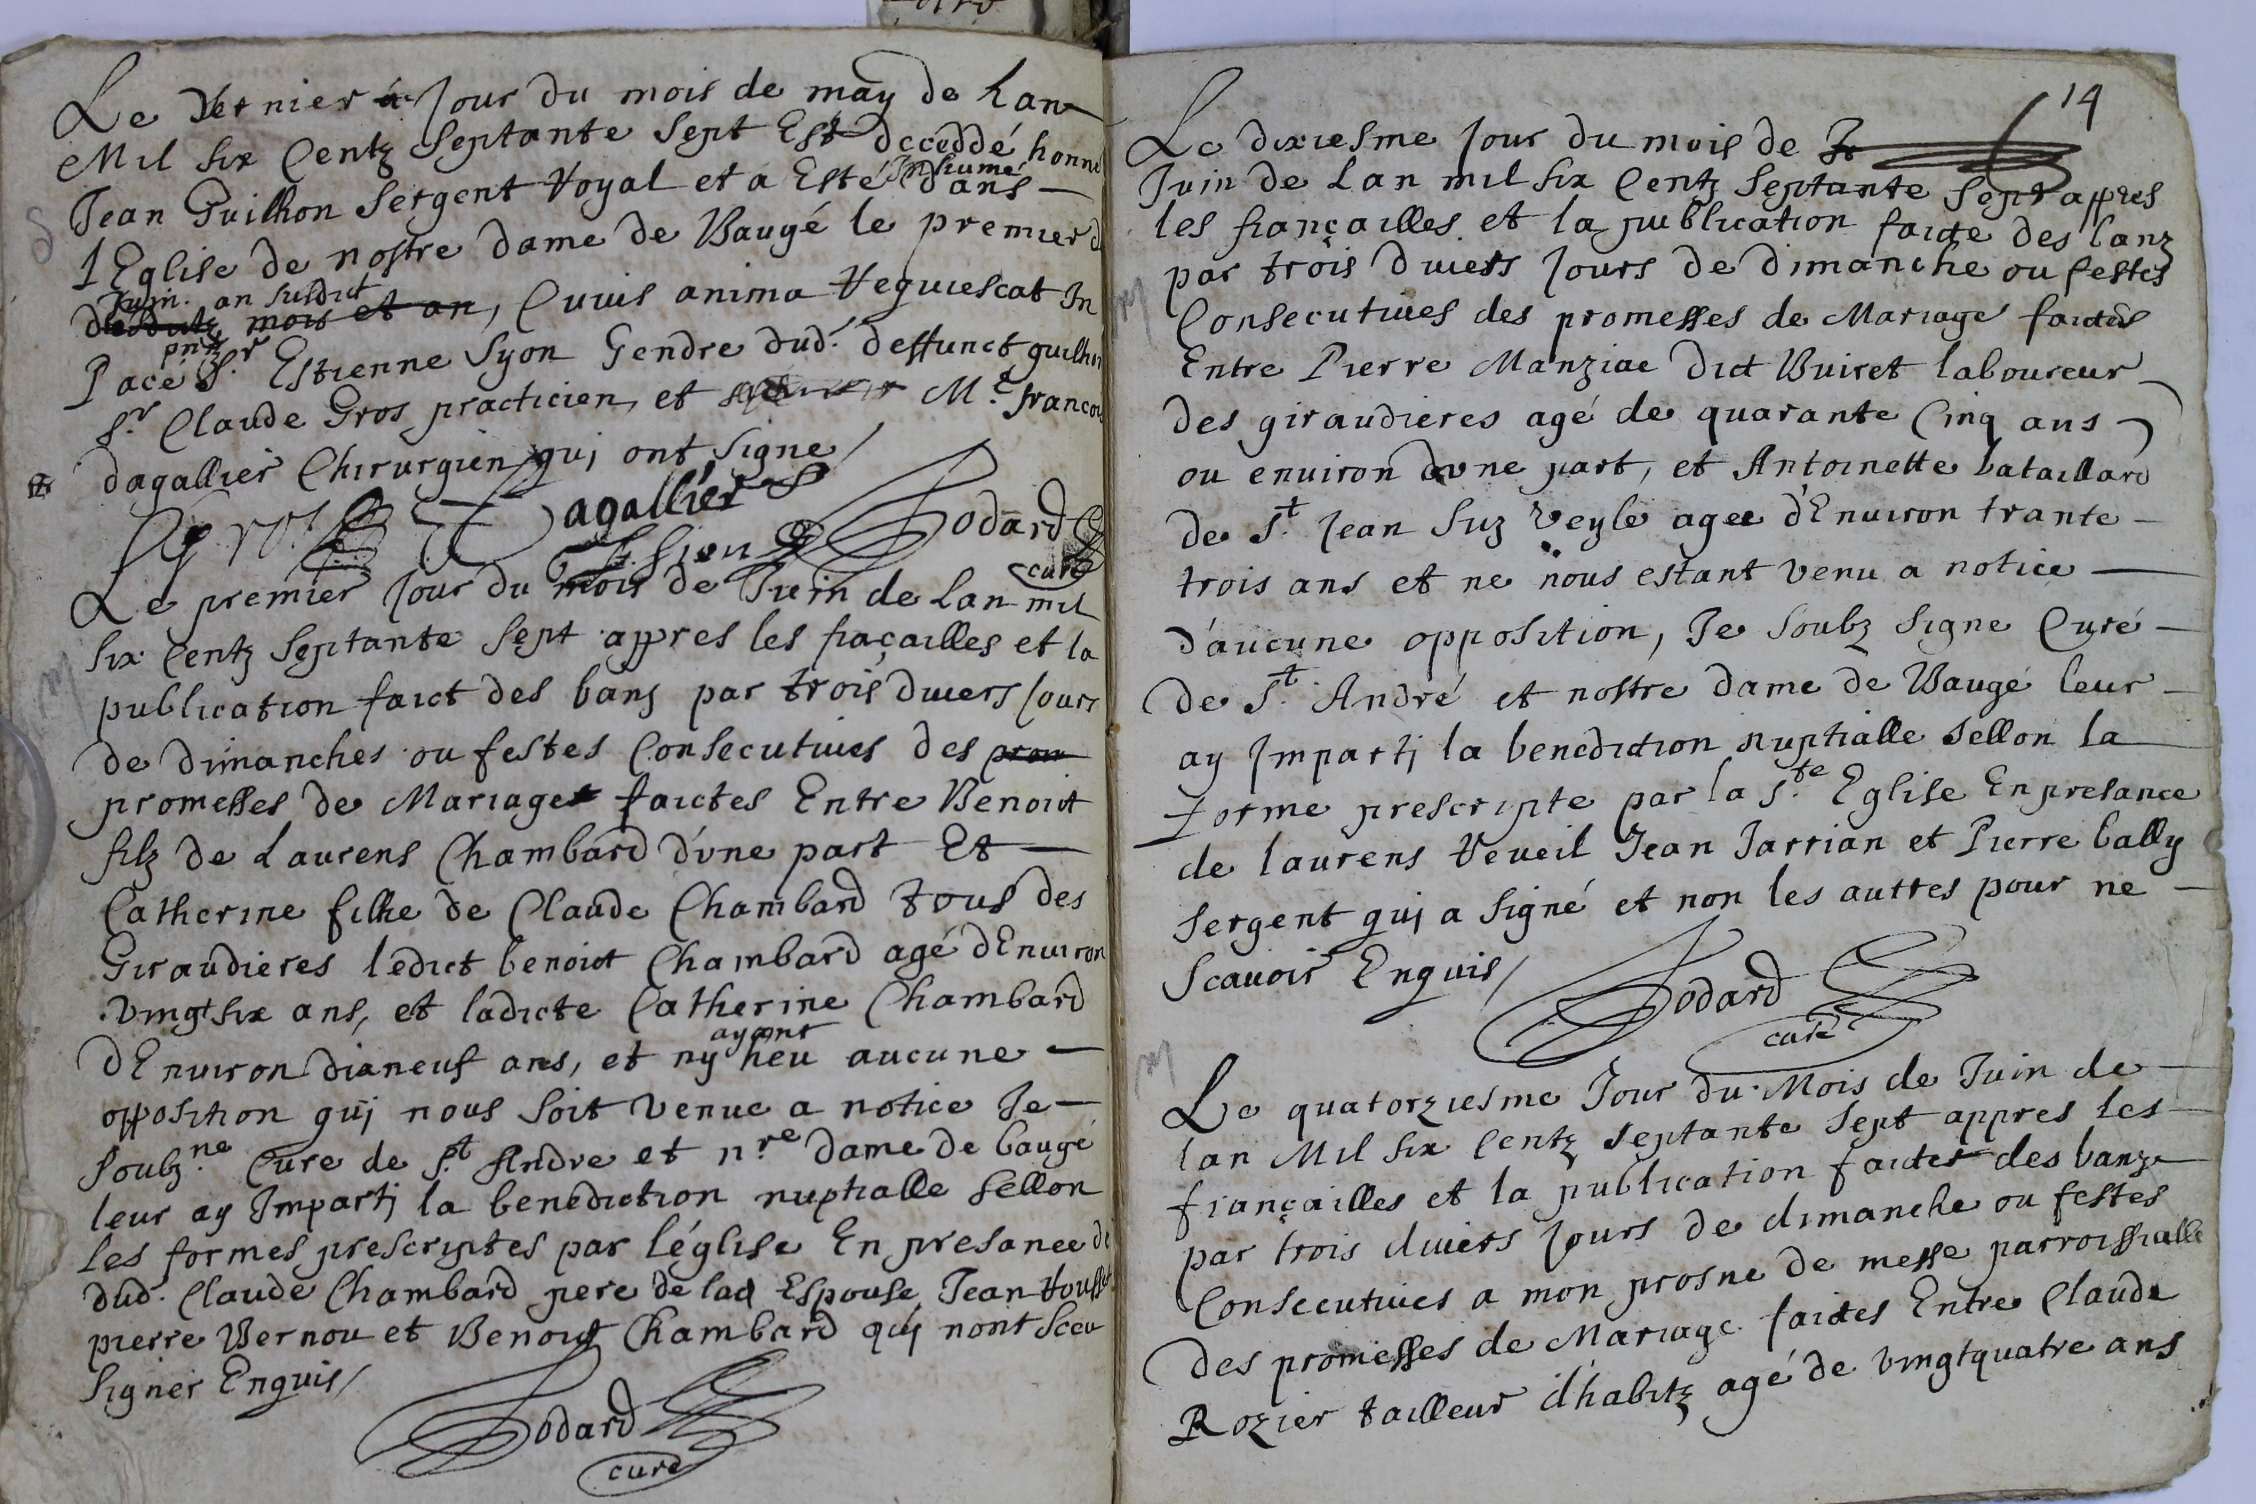 Le dernier jour du mois de may de Lan
Mil six Centz septante sept Est deceddé honne
Jean Guilhon sergent Royal et a Esté Inhumé dans
l'Eglise de nostre dame de Baugé le premier d
Juin. an susdict
desdictz mois et an, Cuius anima Requiescat In
Pace pntz Sr. Estienne Syon Gendre dud. deffunct guilhon
Sr. Claude Gros practicien, et Me. francois
dagallier Chirurgien qui ont signe
Gros Dagallier
E Sion Godard
curé
Le premier Jour du mois de Juin de Lan mil
six Centz septante sept appres les fiaçailles et la
publication faict des bans par trois divers Jours
de dimanches ou festes Consecutives des prom
promesses de Mariages faictes Entre Benoict
filz de Laurens Chambard d'une part Et
Catherine fillie de Claude Chambard tous des
Giraudieres ledict benoict Chambard agé dEnviron
vingt six ans, et ladicte Catherine Chambard
dEnviron dianeuf ans, et ny ayant heu aucune
opposition qui nous soit venue a notice Je
soubz.ne Cure de St. Andre et n.re dame de baugé
leur ay Imparti la benediction nuptialle sellon
les formes prescriptes par léglise En presance de
dud. Claude Chambard pere de lad Espouse Jean
pierre Bernou et Benoict Chambard qui nont sceu
signer Enquis
Godard
curé
14
Le dixiesme Jour du mois de
Juin de Lan mil six Centz septante sept appres
les fiançailles et la publication faicte des banz
par trois divers Jours de dimanche ou festes
Consecutives des promesses de Mariage faictes
Entre Pierre Manziac dict Buiret laboureur
des giraudieres agé de quarante Cinq ans
ou environ d'vne part, et Antoinette bataillard
de St. Jean suz veyle agee d'Environ trante
trois ans et ne nous estant venu a notice
d'aucune opposition, Je soubz signe Curé
de St. André et nostre dame de Baugé leur
ay Imparti la benediction nuptialle sellon la
forme prescripte par la Ste Eglise En presance
de laurens Reveil Jean Jarrian et Pierre bally
sergent qui a signé et non les autres pour ne
scavoir Enquis
Godard
curé
Le quatorziesme Jour du Mois de Juin de
lan Mil six Centz septante sept appres les
fiançailles et la publication faictes des banz
par trois divers Jours de dimanche ou festes
Consecutives a mon prosne de messe parroissialle
des promesses de Mariage faictes Entre Claude
Rozier tailleur d'habitz agé de vingtquatre ans